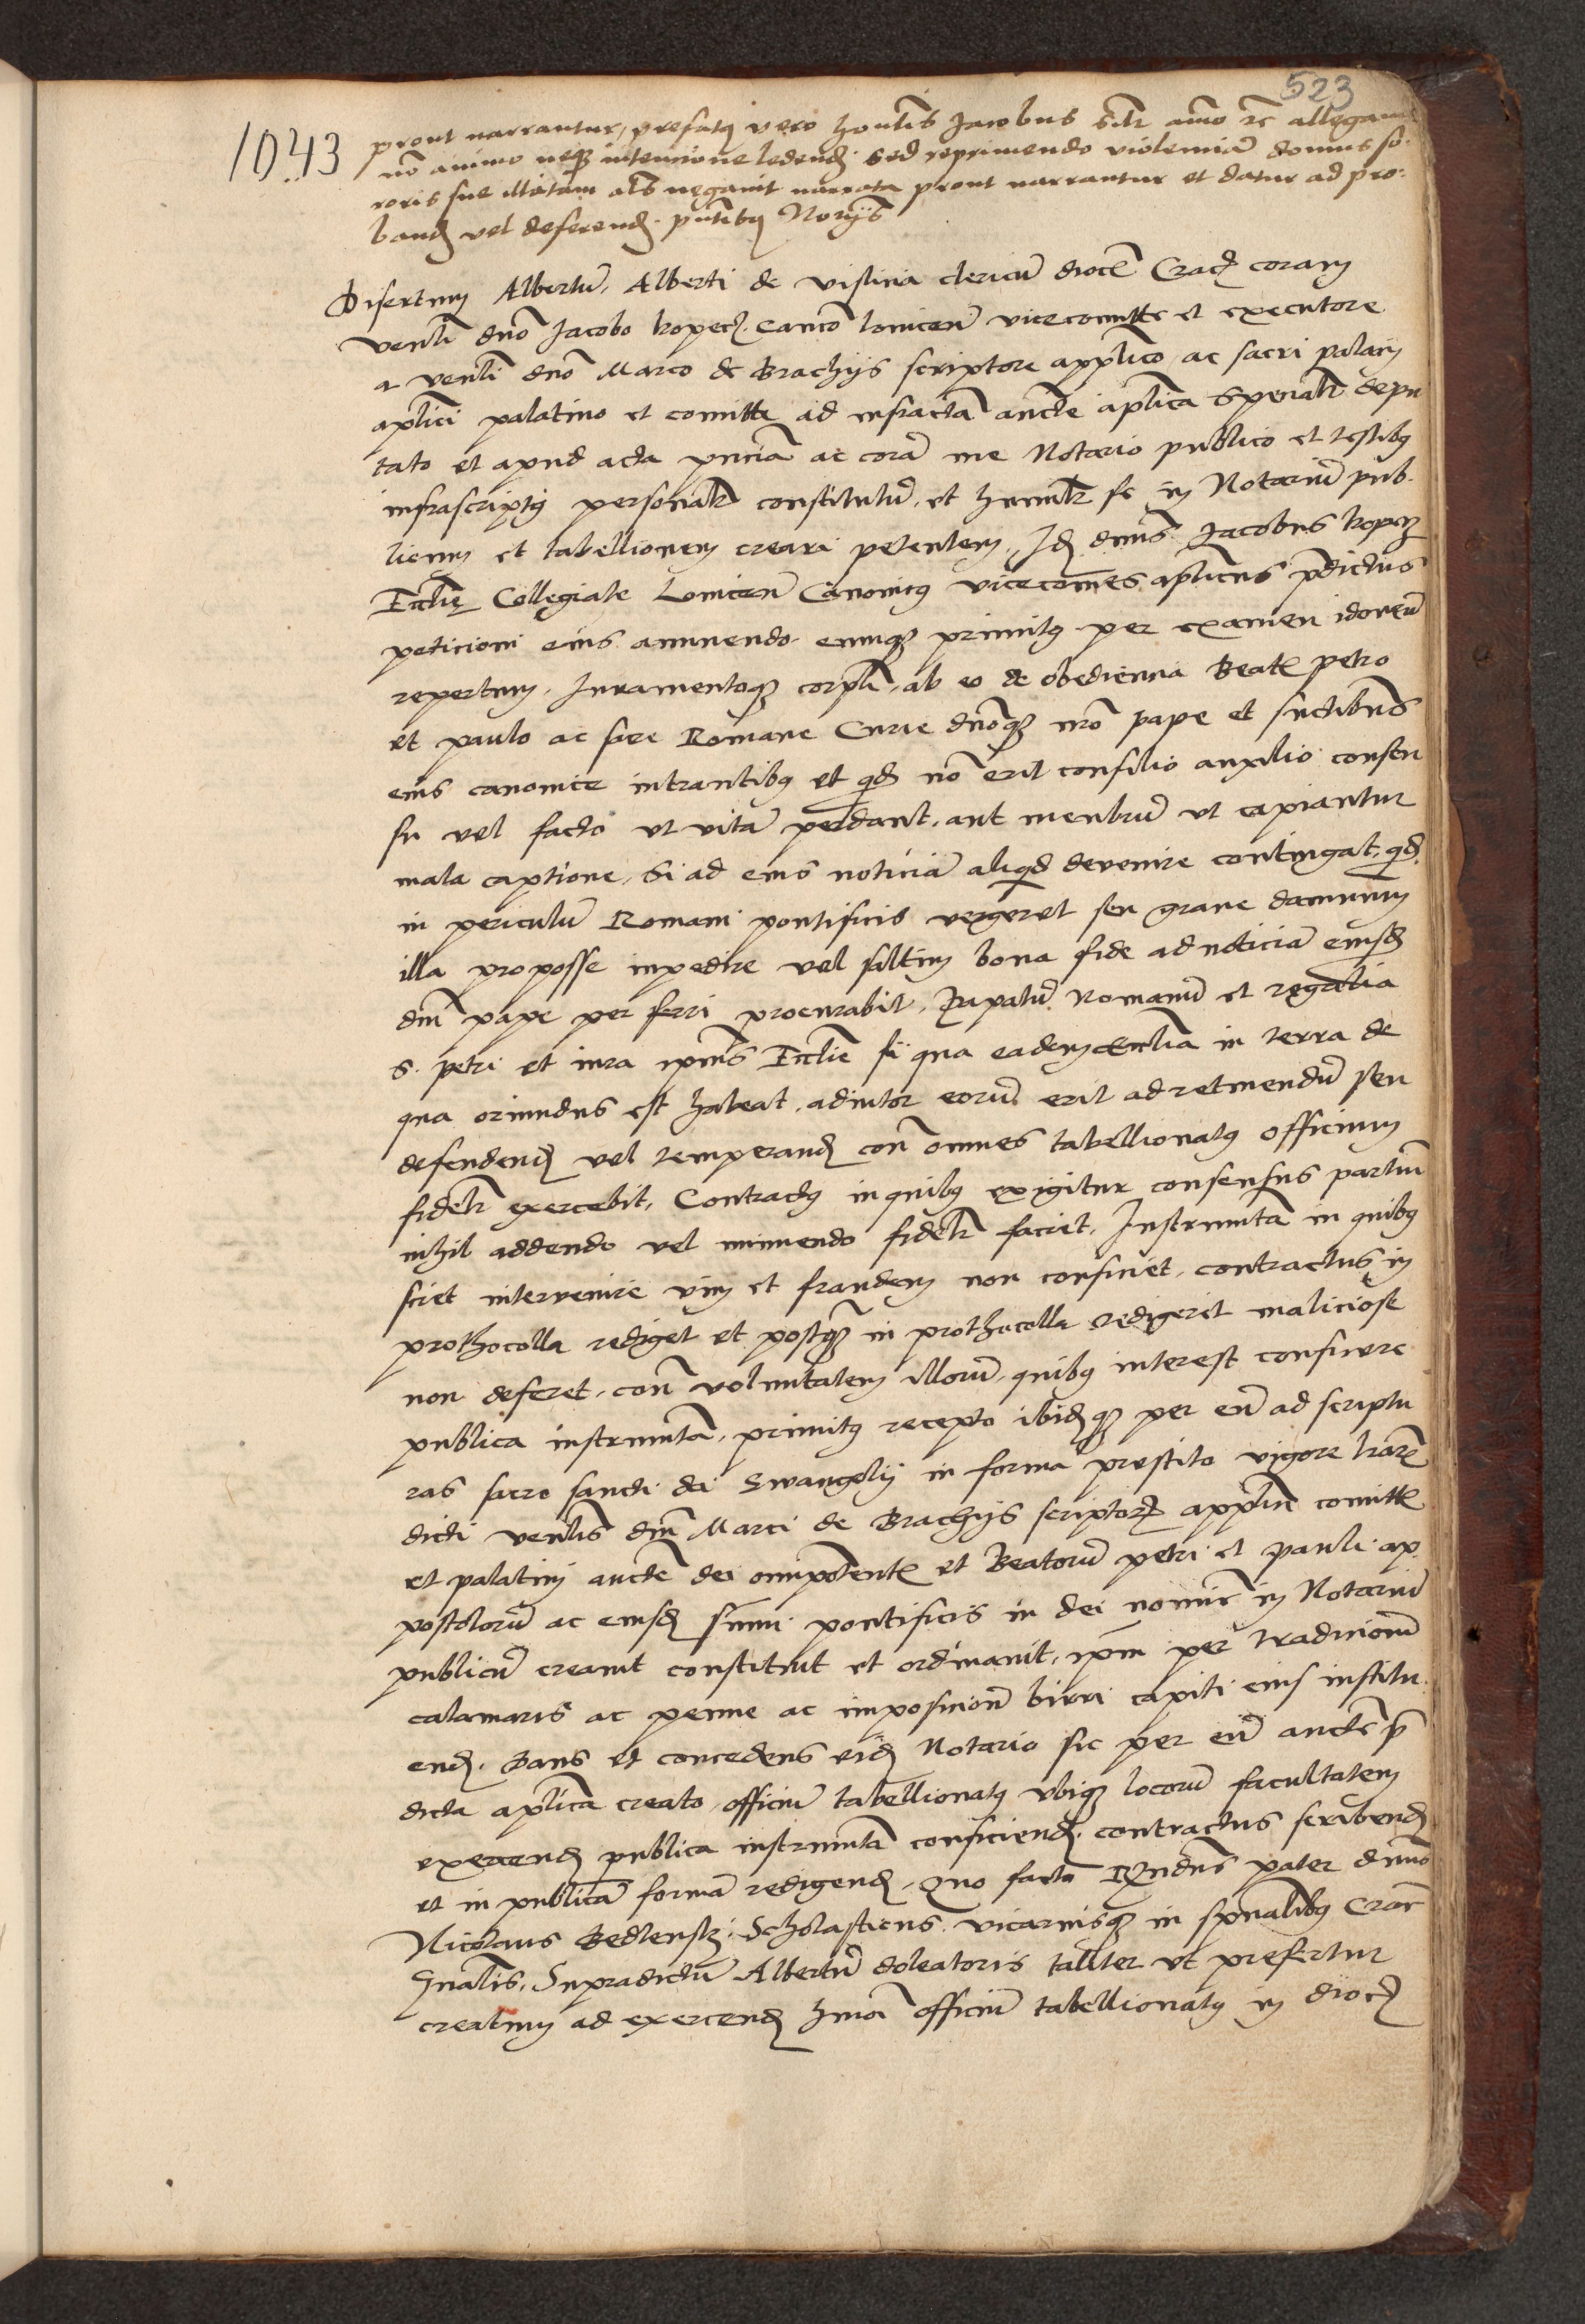 523
1043
prout narrantur, prefatq vero honlis Jacobus silr aĩo rc allegavit
nõ animo neqz intencione ledendi sed reprimendo violenciã domus so-
roris sue illatam als negavit narrata prout narrantur et datur ad pro-
band vel deferend. pñtibq Norijs
Disertum Albertũ, Alberti de vislicia clericũ dioc Crac coram
venli dno Jacobo kopecz canco loniceñ vicecomitte et executore
a venli dno Marco de Brachijs scriptore applico ac sacri palacij
aplici palatino et comitte ad infracta aucte aplica specialr depu
tato et apud acta pñcia ac corã me Notario publico et testibq
infrascriptq personalr constitutũ, et humilr se in Notariũ pub-
licum et tabellionem creari petentem, Id dnus Jacobus kopecz
Ecclie Collegiate Loniceñ Canonicq vicecomes aplicus pdictus
peticioni eius annuendo eumqz primitq per examen idoneũ
repertum, Juramentoqz corpli, ab eo de obediencia Beatis petro
et paulo ac sacre Romane Curie dnoqz nro pape et suctibus
eius canonice intrantibq et qd nõ erit consilio auxilio consen
su vel facto ut vitã perdant, aut membrũ ut capiantur
mala captione, Si ad eius noticiã aliqd devenire contingat, qd
in periculũ Romani pontificis vergeret seu grave damnum
illa proposse inpedire vel saltim bona fide ad noticiã eiusd
dni pape per ferri procurabit, Papatũ Romanũ et regalia
S. petri et iura ipius Ecclie si qua eadem Ecclia in terra de
qua oriundus est habeat, adiutor eorũ erit ad retinendũ seu
defendend vel temperand con omnes tabellionatq officium
fidelr exercebit, Contractq in quibq exigitur consensus partiũ
nihil addendo vel minuendo fidelr faciet, Instrumta in quibq
sciet intervenire vim et fraudem non conficiet, contractus in
prothocolla rediget et postqz in prothocolla redigerit maliciose
non deferet, con voluntatem illorũ, quibq interest conficere
publica instrumta, primitq recepto ibidqz per eũ ad scriptu
ras sacro sancti dei Ewangelij in forma prestito vigore lrarũ
dicti venlis dni Marci de Brachijs scriptor applic comitt
et palatini aucte dei omnipotent et Beatorũ petri et pauli ap
postolorũ ac eiusd sumi pontificis in dei nomie in Notariũ
publicũ creavit constituit et ordinavit, ipm per tradicionẽ
calamaris ac penne ac imposicionẽ birri capiti eius institu
end. Dans et concedens eid Notario sic per eũ aucte p
dicta aplica creato, officiũ tabellionatq ubiqz locorũ facultatem
exercend publica instrumta conficiend, contractus scribend
et in publicã formã redigend, Quo facto Rndus pater dnus
Nicolaus Bedlensky Scholasticus vicariusqz in spũalibq Crac
Gnalis, Supradictũ Albertũ doleatoris taliter ut prefertur
creatum ad exercend hmoi officiũ tabellionatq in dioc